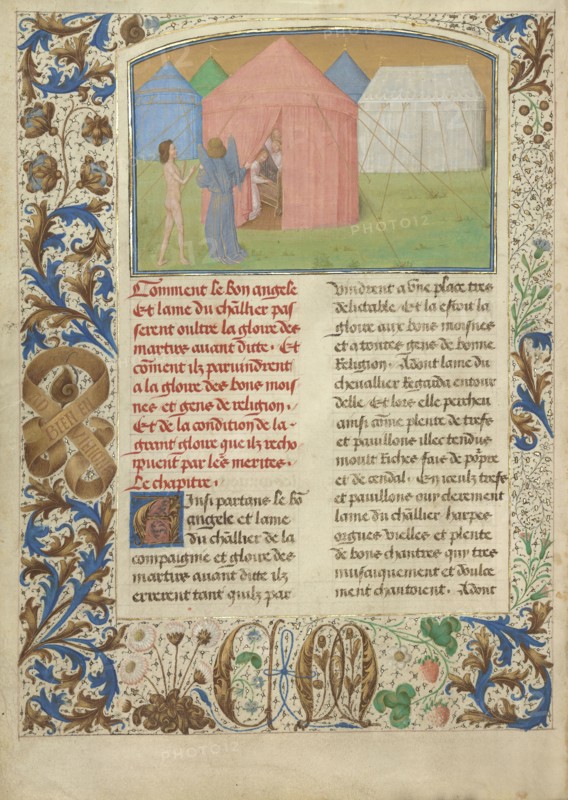 Comment le bon angele
Et lame du chāllier pas
serent oultre la gloire des
martirs auant ditte . Et
cōment ilz paruindrent
a la gloire des bons mois
nes et gens de religion .
Et de la condition de la
grant gloire que ilz recho
ipuent par les merites .
Le chapitre .
Ainsi partans le bō
angele et lame
du chāllier de la
compaignie et gloire des
martirs auant ditte ilz
errerent tant quilz par
vindrent a vne place tres
delictable . Et la estoit la
gloire aux bons moisnes
et a toutes gens de bonne
Religion . Adont lame du
cheuallier Regarda entour
delle Et lors elle percheu
ainsi cōme plente de trefs
et pauillons illec tendus
moult Riches fais de pōpre
et de cendal . En iceulz trefs
et pauillons our clerement
lame du chāllier harpes
orgues vielles et plente
de bons chantres qui tres
musiquement et doulce
ment chantoient . Adont
BIEN EN
C M
PHOTO12